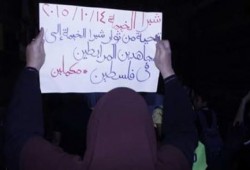 شبرا الخيمة ٢٠١٥/١٠/١٤
تحية من ثوار شبرا الخيمة إلى
مجاهدين المرابطين
في فلسطين * مكملين